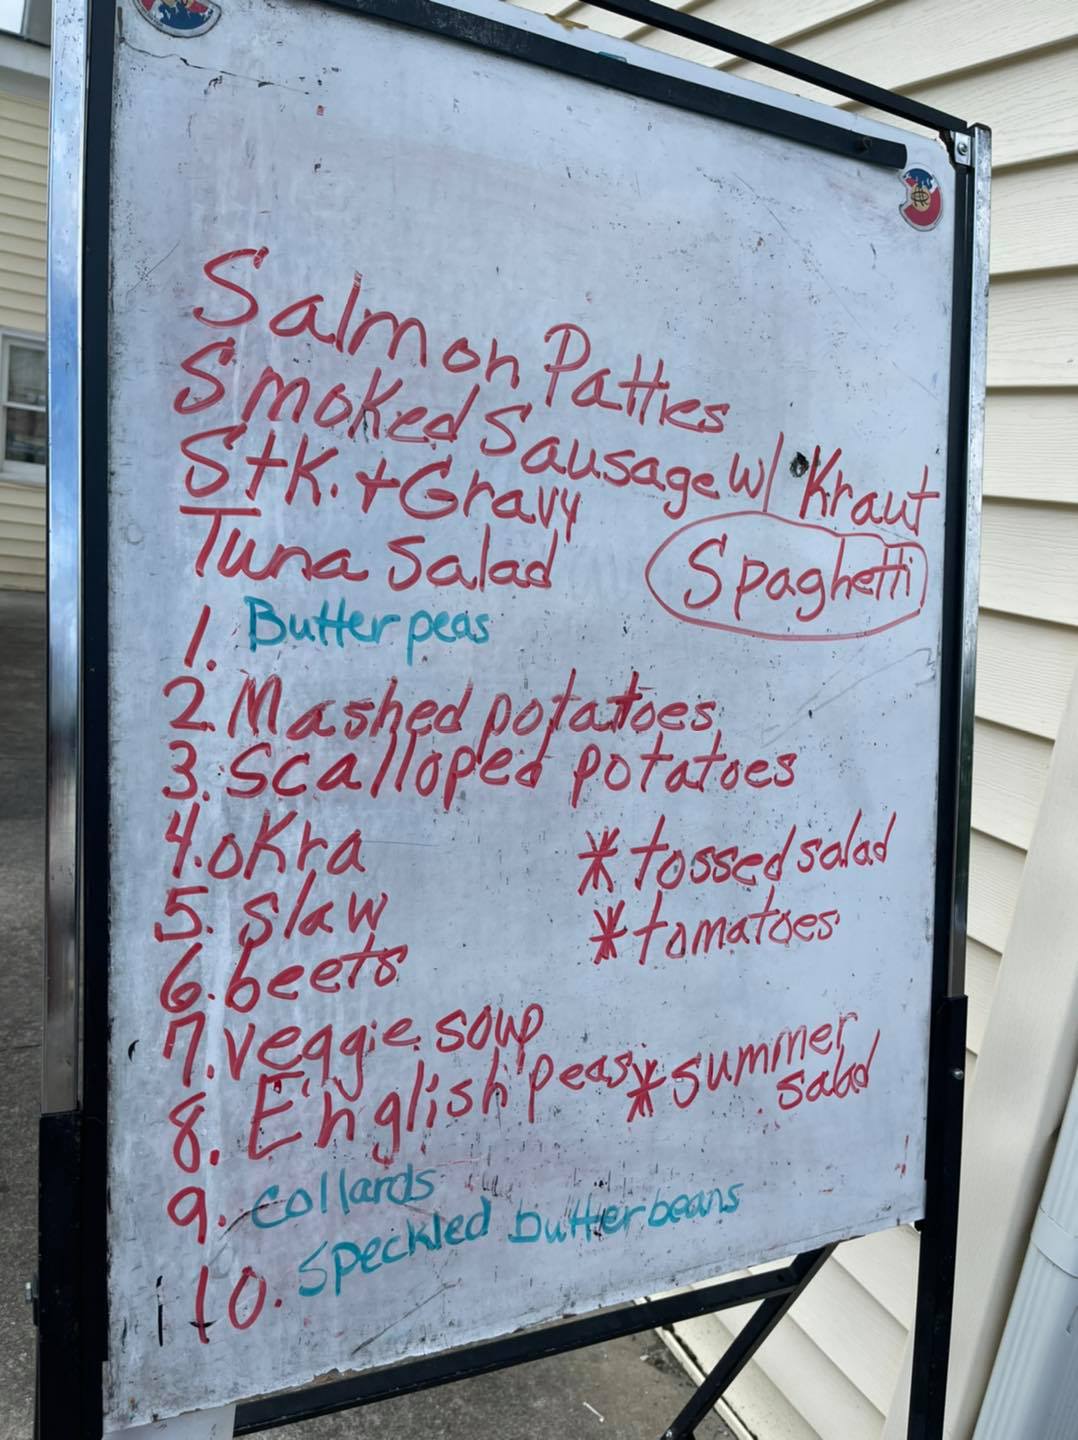 Salmon Patties
Smoked Sausage w/ Kraut
StK. + Gravy
Tuna Salad
Spaghetti
1. Butter peas
2. Mashed potatoes
3. Scalloped potatoes
4. oKra
* tossed salad
5. slaw
* tomatoes
6. beets
7. veggie soup
8. English peas
* summer
salad
9. collards
10. speckled butter beans